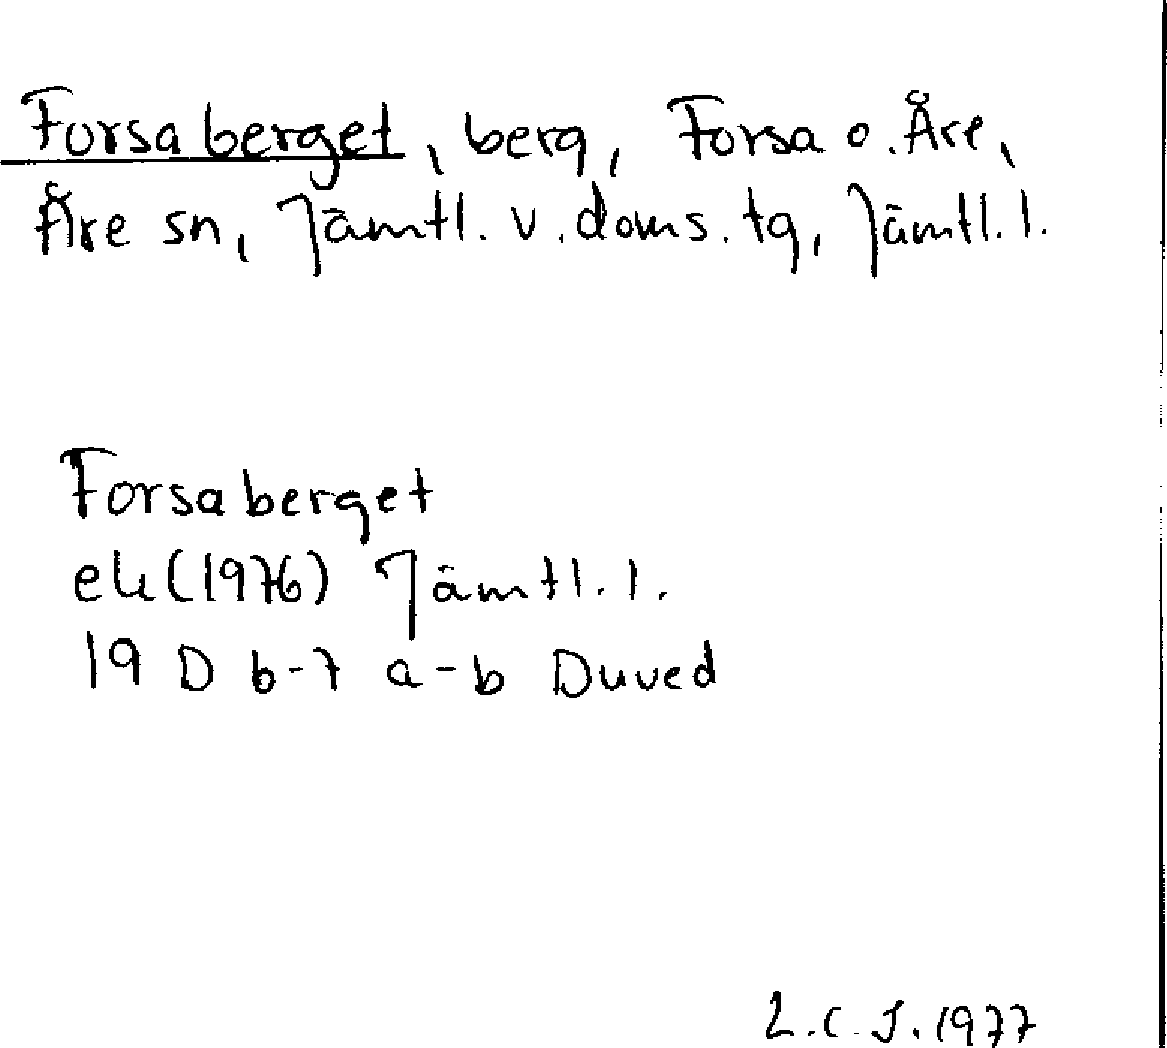 Forsaberget, berg, Forsa o. Åre,
Åre sn, Jämtl. v. doms. tg, Jämtl. l.
Forsaberget
ek (1976) Jämtl. l.
19 D 6-7 a-b Duved
L.C.J. 1977